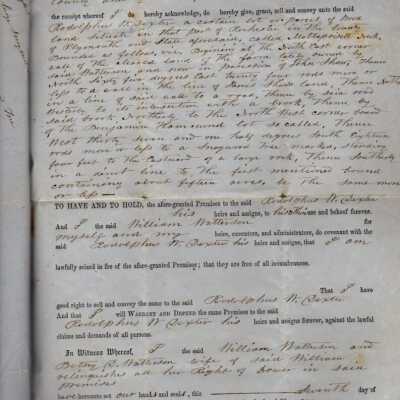 the receipt whereof I do hereby acknowledge, do hereby give, grant, sell and convey unto the said
Rodolphus W. Dexter a certain lot or parcel of
land situate in that part of Rochester in the
of Plymouth and State aforesaid, called Mattapoisett Neck,
Bounded as follows, viz. Beginning at the North East corner
of the cleared land of the farm
said Watterson and now in possession of John Shaw, Thence
North Sixty five degrees East twenty four rods more or
less to a in the line of James land, Thence North
in a line of said to a
to its intersection with a brook, Thence by
said brook Northerly to the North West corner bound
of the Benjamin Hammond Lot so called, Thence
West thirty seven and one half degrees South Eighteen
rods more or less to a Tree marked, standing
four feet to the Eastward of a large rock, Thence Southerly
in a direct line to the first mentioned bound
containing about fifteen acres, be the same more
or less
TO HAVE AND TO HOLD, the afore-granted Premises to the said Rodolphus W. Dexter
his heirs and assigns, to his use and behoof forever.
And I the said William Watterson for
myself and my heirs, executors, and administrators, do covenant with the
said Rodolphus W. Dexter his heirs and assigns, that I am
lawfully seized in fee of the afore-granted Premises; that they are free of all incumbrances.
That I have
good right to sell and convey the same to the said Rodolphus W. Dexter
And that I will WARRANT AND DEFEND the same Premises to the said
Rodolphus W. Dexter his heirs and assigns forever, against the lawful
claims and demands of all persons.
In Witness Whereof, I the said William Watterson and
Betsey Watterson wife of said William
relinquishes all her Right of Dower in said
premises
have hereunto set our hands and seals, this seventh day of